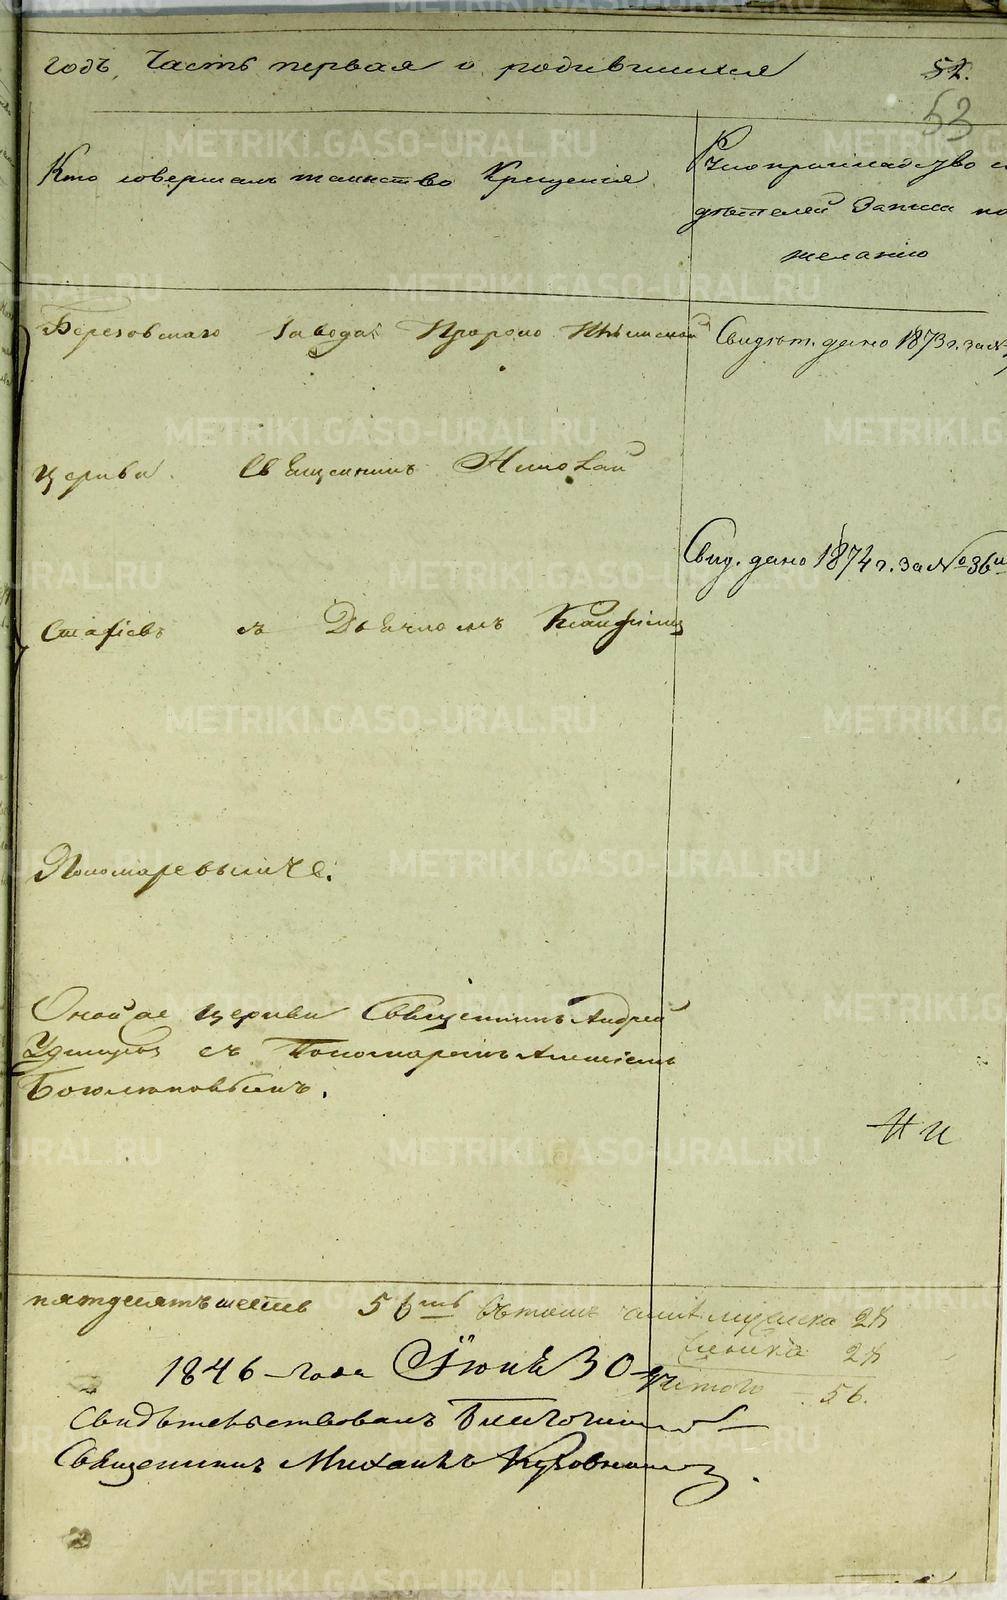 годъ, Часть первая о родившихся 52.
53
Кто совершалъ таинство Крещенія
Рукоприкладство с
дѣтелей Записи по
желанію
Березовскаго Завода Пророко Ильинской
Свидѣт. дано 1873 г. за №
Церкви Священникъ Николай
Свид. дано 1874 г. за № 36
съ Дьячкомъ
Пономаревымъ
Онойже церкви Священникъ Андрей
съ Пономаремъ Алексіемъ
Боголюповымъ.
пятдесятъ шесть 56ть въ томъ числѣ мужска 28
женска 28
Итого 56.
1846 года Іюня 30
Свидѣтельствовалъ Благочинный
Священникъ Михаилъ
METRIKI.GASO-URAL.RU